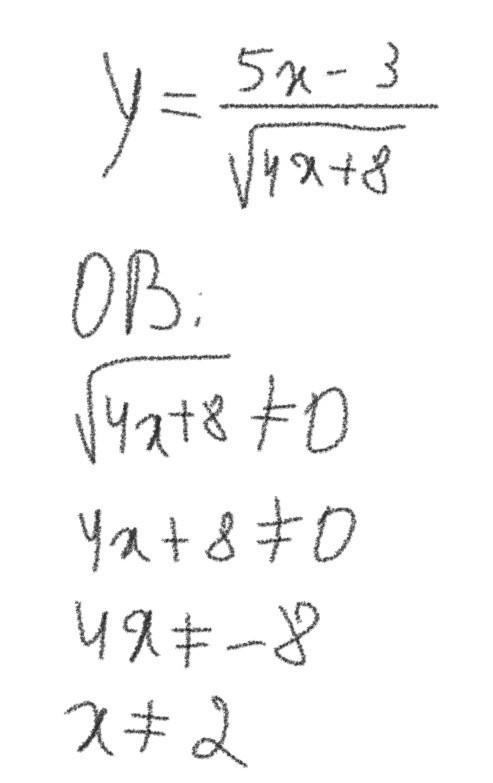 y = (5x - 3)/√(4x+8)
OB:
√(4x+8) ≠ 0
4x + 8 ≠ 0
4x ≠ -8
x ≠ 2